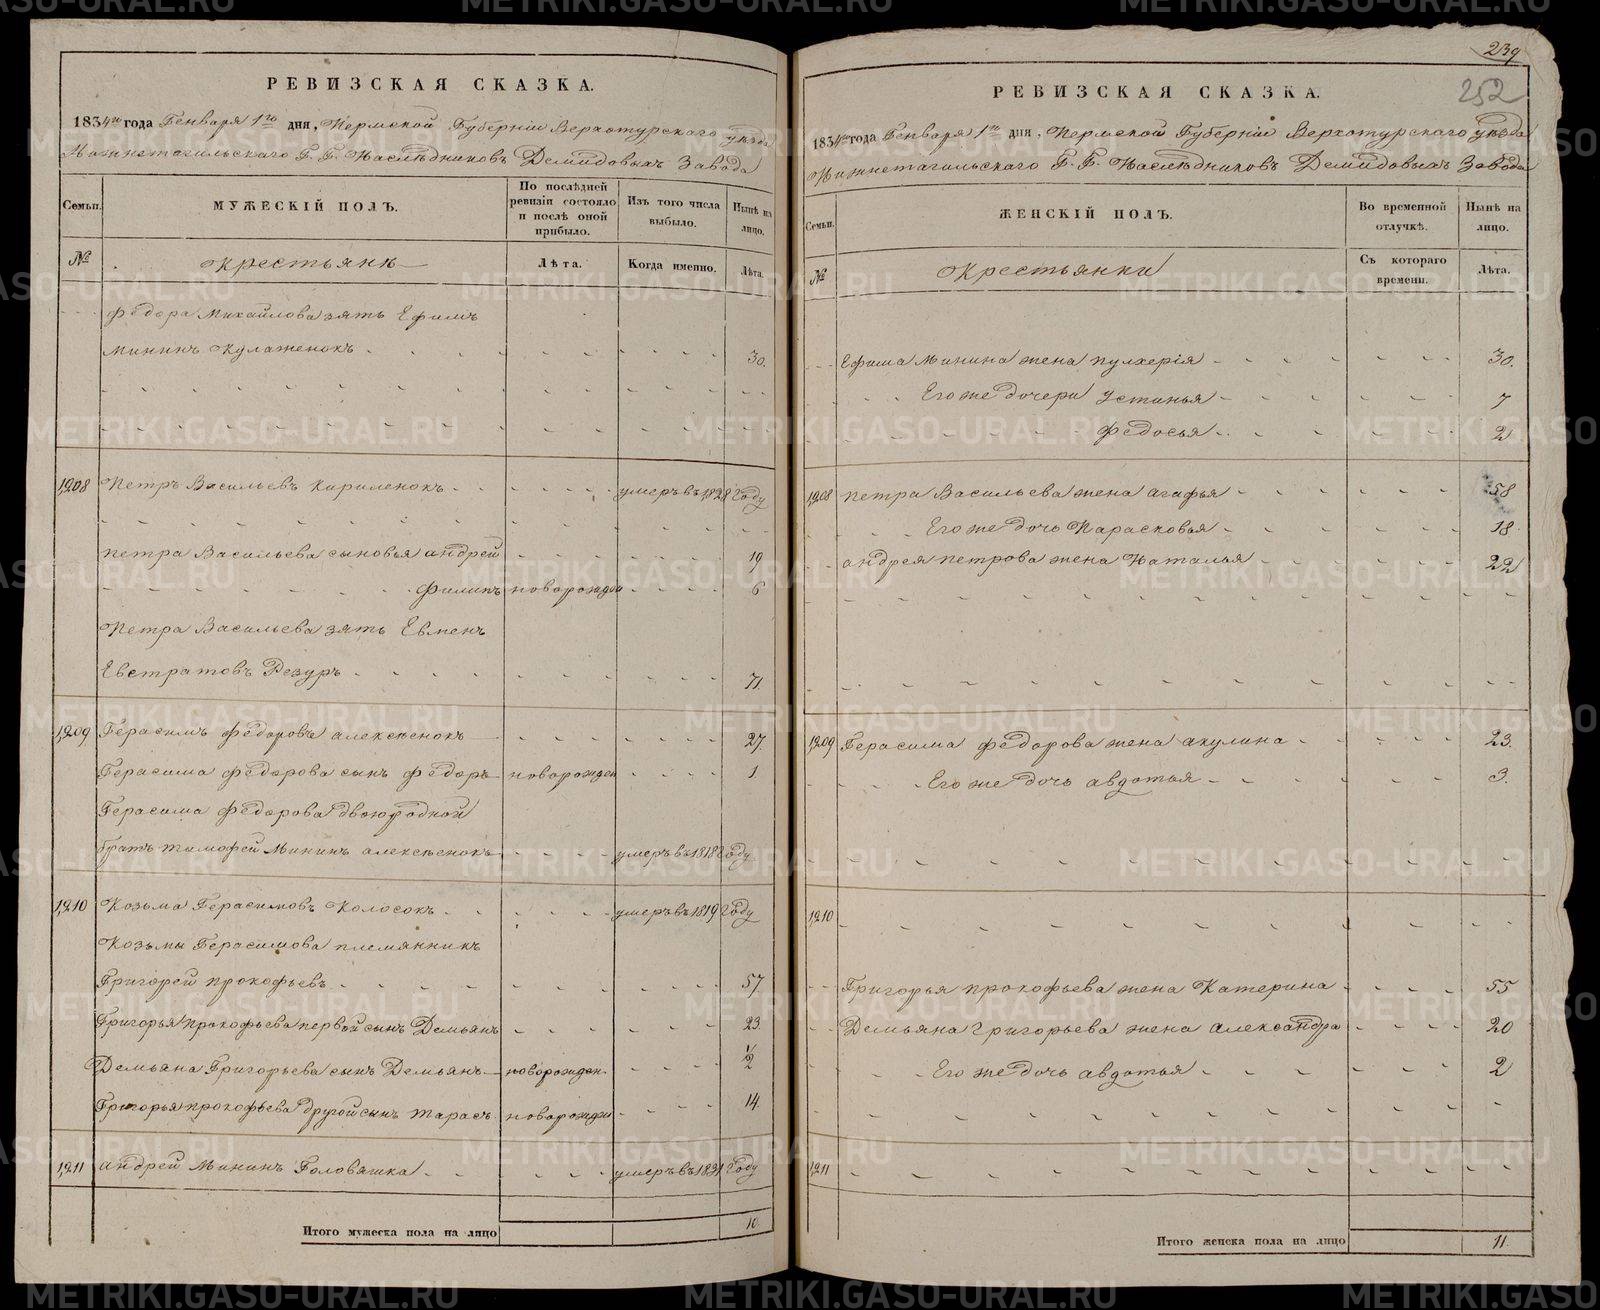 РЕВИЗСКАЯ СКАЗКА.
1834го года Генваря 1го дня, Пермской Губерніи Верхотурскаго уѣзда
Нижнетагильскаго Г. Г. Наслѣдниковъ Демидовыхъ Завода
Семьи. МУЖЕСКІЙ ПОЛЪ. По послѣдней ревизіи состояло и послѣ оной прибыло. Изъ того числа выбыло. Нынѣ на лицо.
№ Крестьяне Лѣта. Когда именно. Лѣта.
Федора Михайлова зять Ефимъ
Мининъ Кулаженокъ 30.
1208 Петръ Васильевъ Кириленокъ умеръ въ 1828 Году
Петра Васильева сыновья андрей 19
Филипъ новорожден 6
Петра Васильева зять Евменъ
Евстратовъ 71.
1209 Герасимъ Федоровъ алексѣенокъ 27.
Герасима Федорова сынъ Федоръ новорожден 1
Герасима Федорова двоюродной
братъ тимофей Мининъ алексѣенокъ умеръ въ 1818 Году
1210 Козьма Герасимовъ Колосокъ умеръ въ 1819 Году
Козьмы Герасимова племянникъ
Григорей прокофьевъ 57.
Григорья прокофьева первой сынъ Демьянъ 23.
Демьяна Григорьева сынъ Демьянъ новорожден 1/2
Григорья прокофьева другой сынъ тарасъ новорожден 14.
1211 андрей Мининъ Головяшка умеръ въ 1831 Году
Итого мужеска пола на лицо 10.
239
252
РЕВИЗСКАЯ СКАЗКА.
1834го года Генваря 1го дня, Пермской Губерніи Верхотурскаго уѣзда
Нижнетагильскаго Г. Г. Наслѣдниковъ Демидовыхъ Завода
Семьи. ЖЕНСКІЙ ПОЛЪ. Во временной отлучкѣ. Нынѣ на лицо.
№ Крестьянки Съ котораго времени. Лѣта.
Ефима Минина жена пулхерія 30.
Его же дочери Устинья 7
Федосья 2
1208 петра Васильева жена агафья 58
Его же дочь Парасковья 18.
андрея петрова жена Наталья 22
1209 Герасима Федорова жена акулина 23.
Его же дочь авдотья 3.
1210
Григорья прокофьева жена Катерина 55
Демьяна григорьева жена александра 20
Его же дочь авдотья 2
1211
Итого женска пола на лицо 11.
METRIKI.GASO-URAL.RU